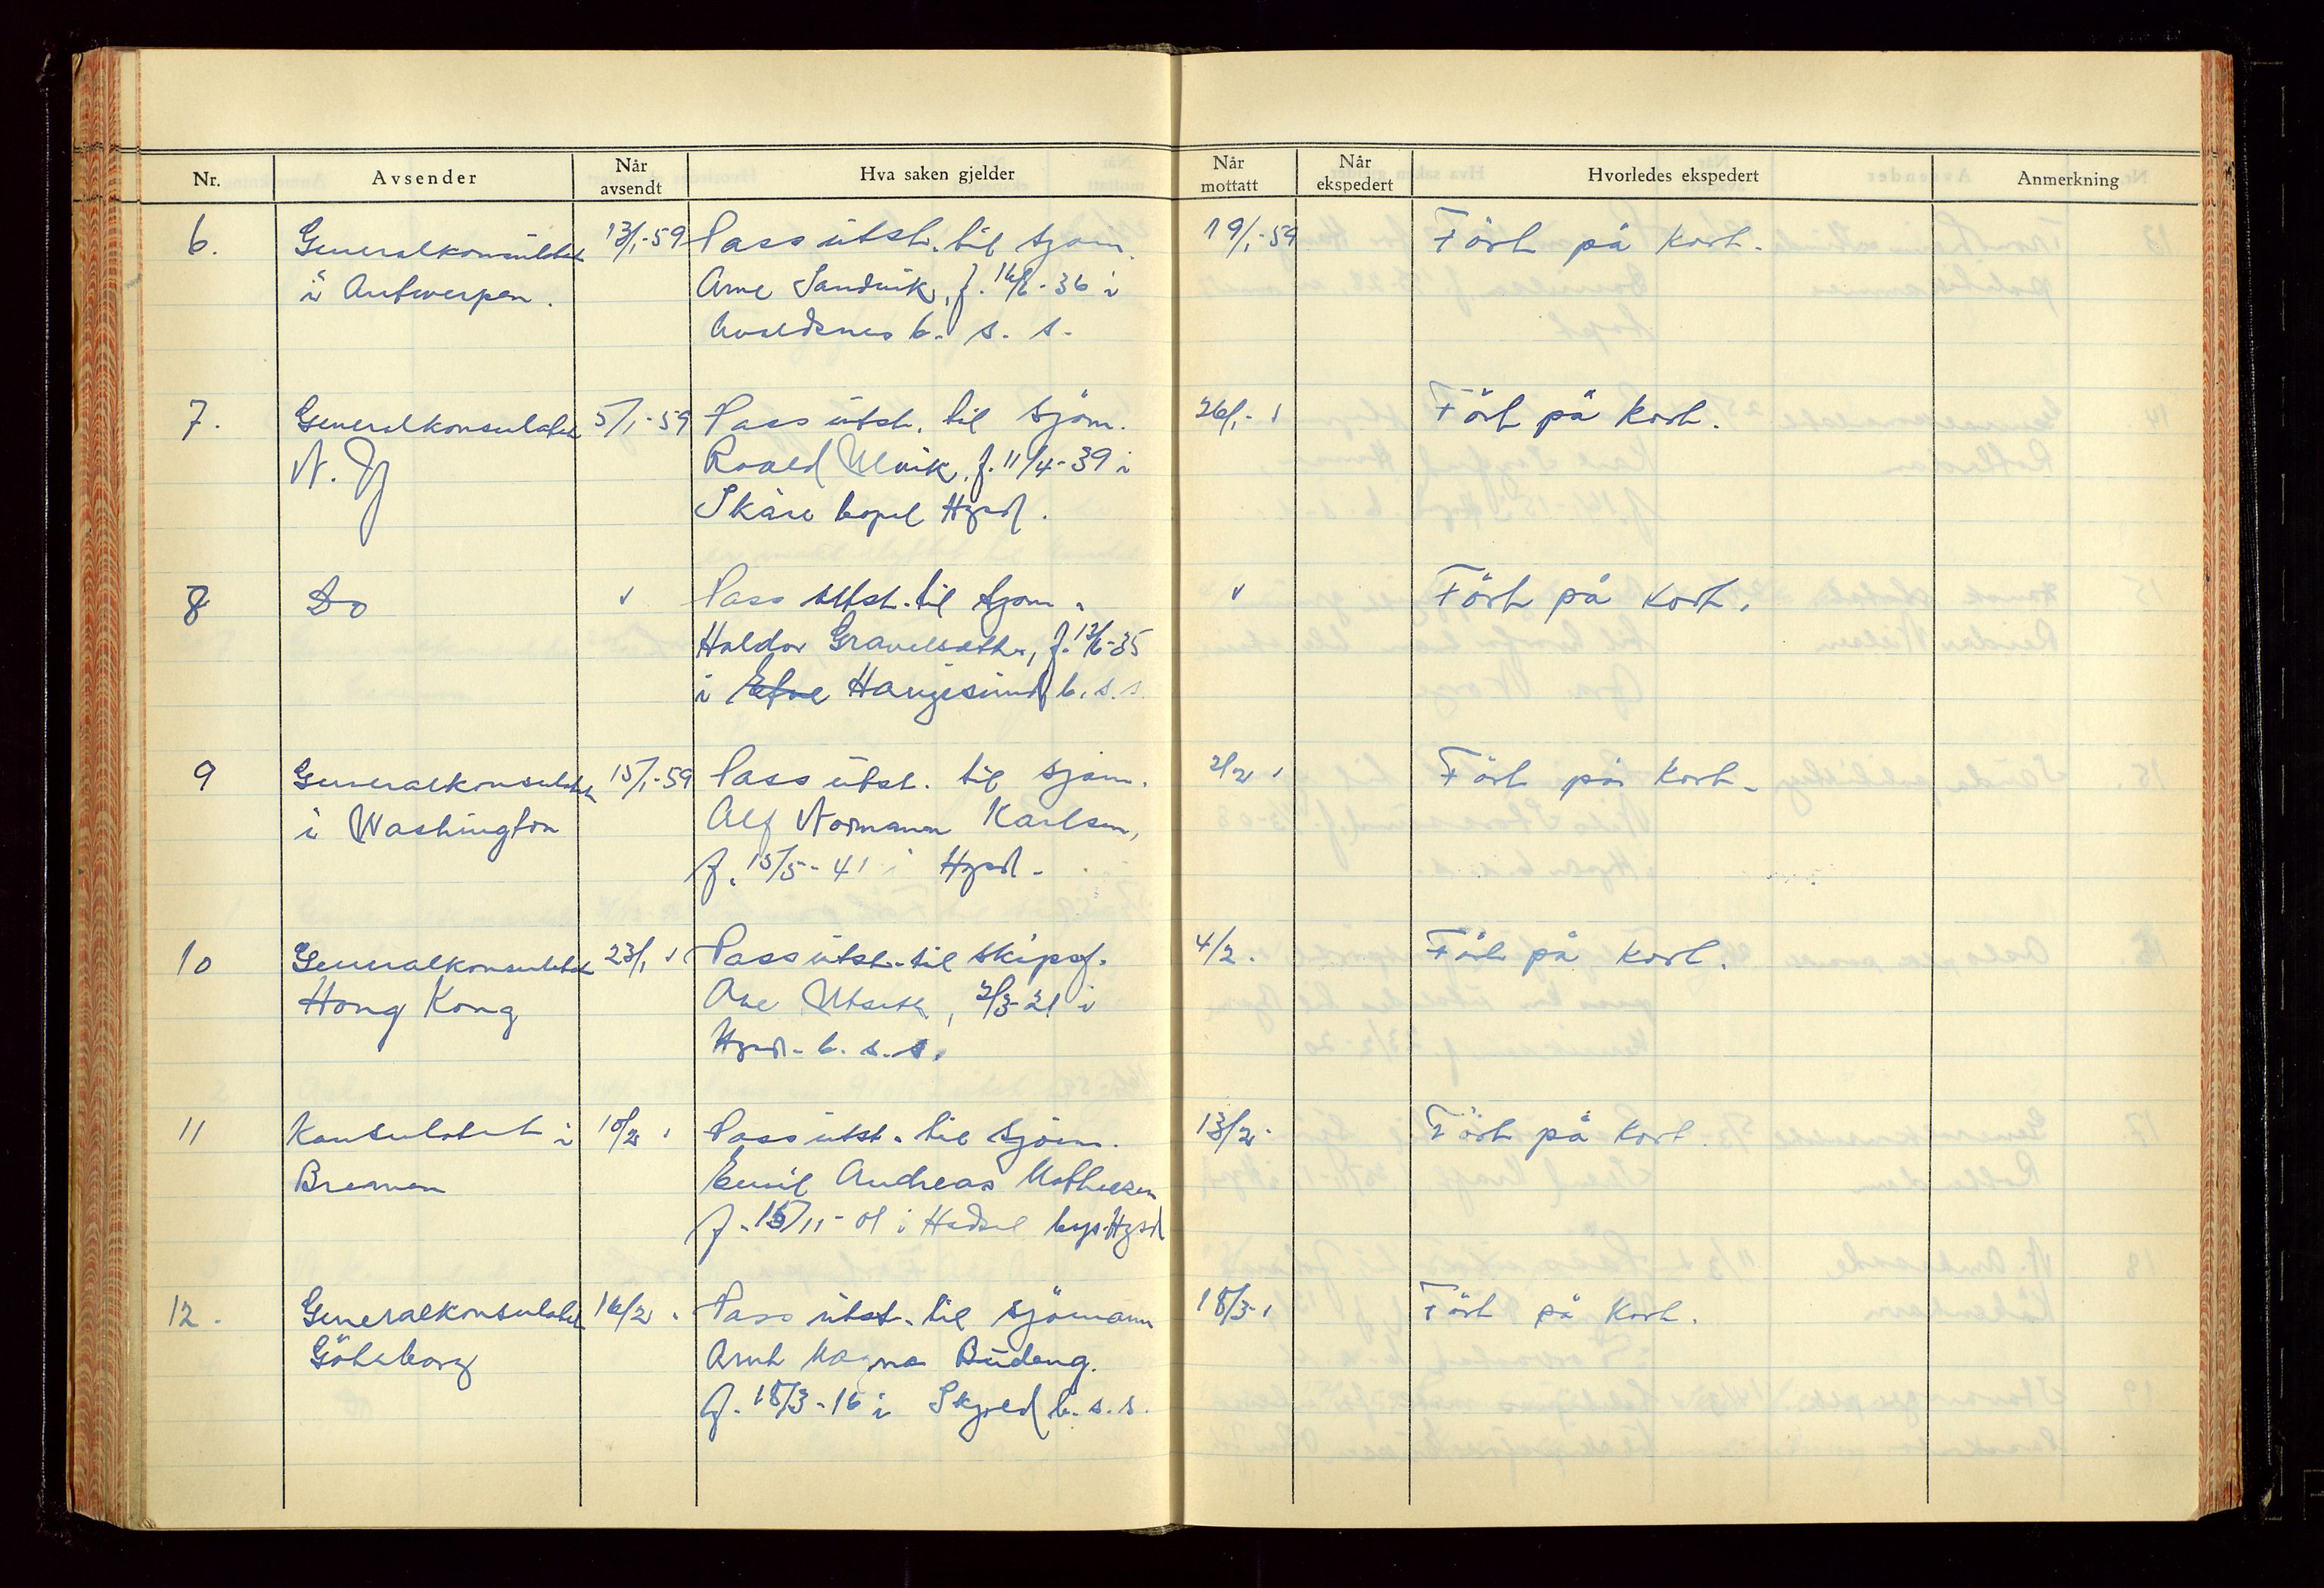 Nr. Avsender Når avsendt Hva saken gjelder Når mottatt Når ekspedert Hvorledes ekspedert Anmerkning
6. Generalkonsulatet 13/1-59 Pass utst. til sjøm. 19/1-59 Ført på kort.
i Antwerpen. Arne Sandvik, f. 16/6-36 i
Avaldsnes b. s. s.
7. Generalkonsulatet 5/1-59 Pass utst. til sjøm. 26/1- Ført på kort.
N.Y Roald Ulvik, f. 11/4-39 i
Skåre bopel Hgsd.
8 Do Pass utst. til sjøm. Ført på kort.
Haldor f. 12/6-35
i Etne Haugesund b. s. s
9 Generalkonsulatet 15/1-59 Pass utst. til sjøm. 2/2 Ført på kort.
i Washington Alf Normann Karlsen,
f. 15/5-41 i Hgsd.
10 Generalkonsulatet 23/1 Pass utst. til skipsf. 4/2. Ført på kort.
Hong Kong 2/3-21 i
Hgsd. b. s. s.
11 Konsulatet i 10/2 Pass utst. til sjøm. 13/2- Ført på kort.
Bremen Emil Andreas
f. 15/11-01 i Hadsel bop. Hgsd
12. Generalkonsulatet 16/2 Pass utst. til sjømann 18/3- Ført på kort.
Göteborg Arnt Magne
f. 18/3-16 i Skjold b. s. s.